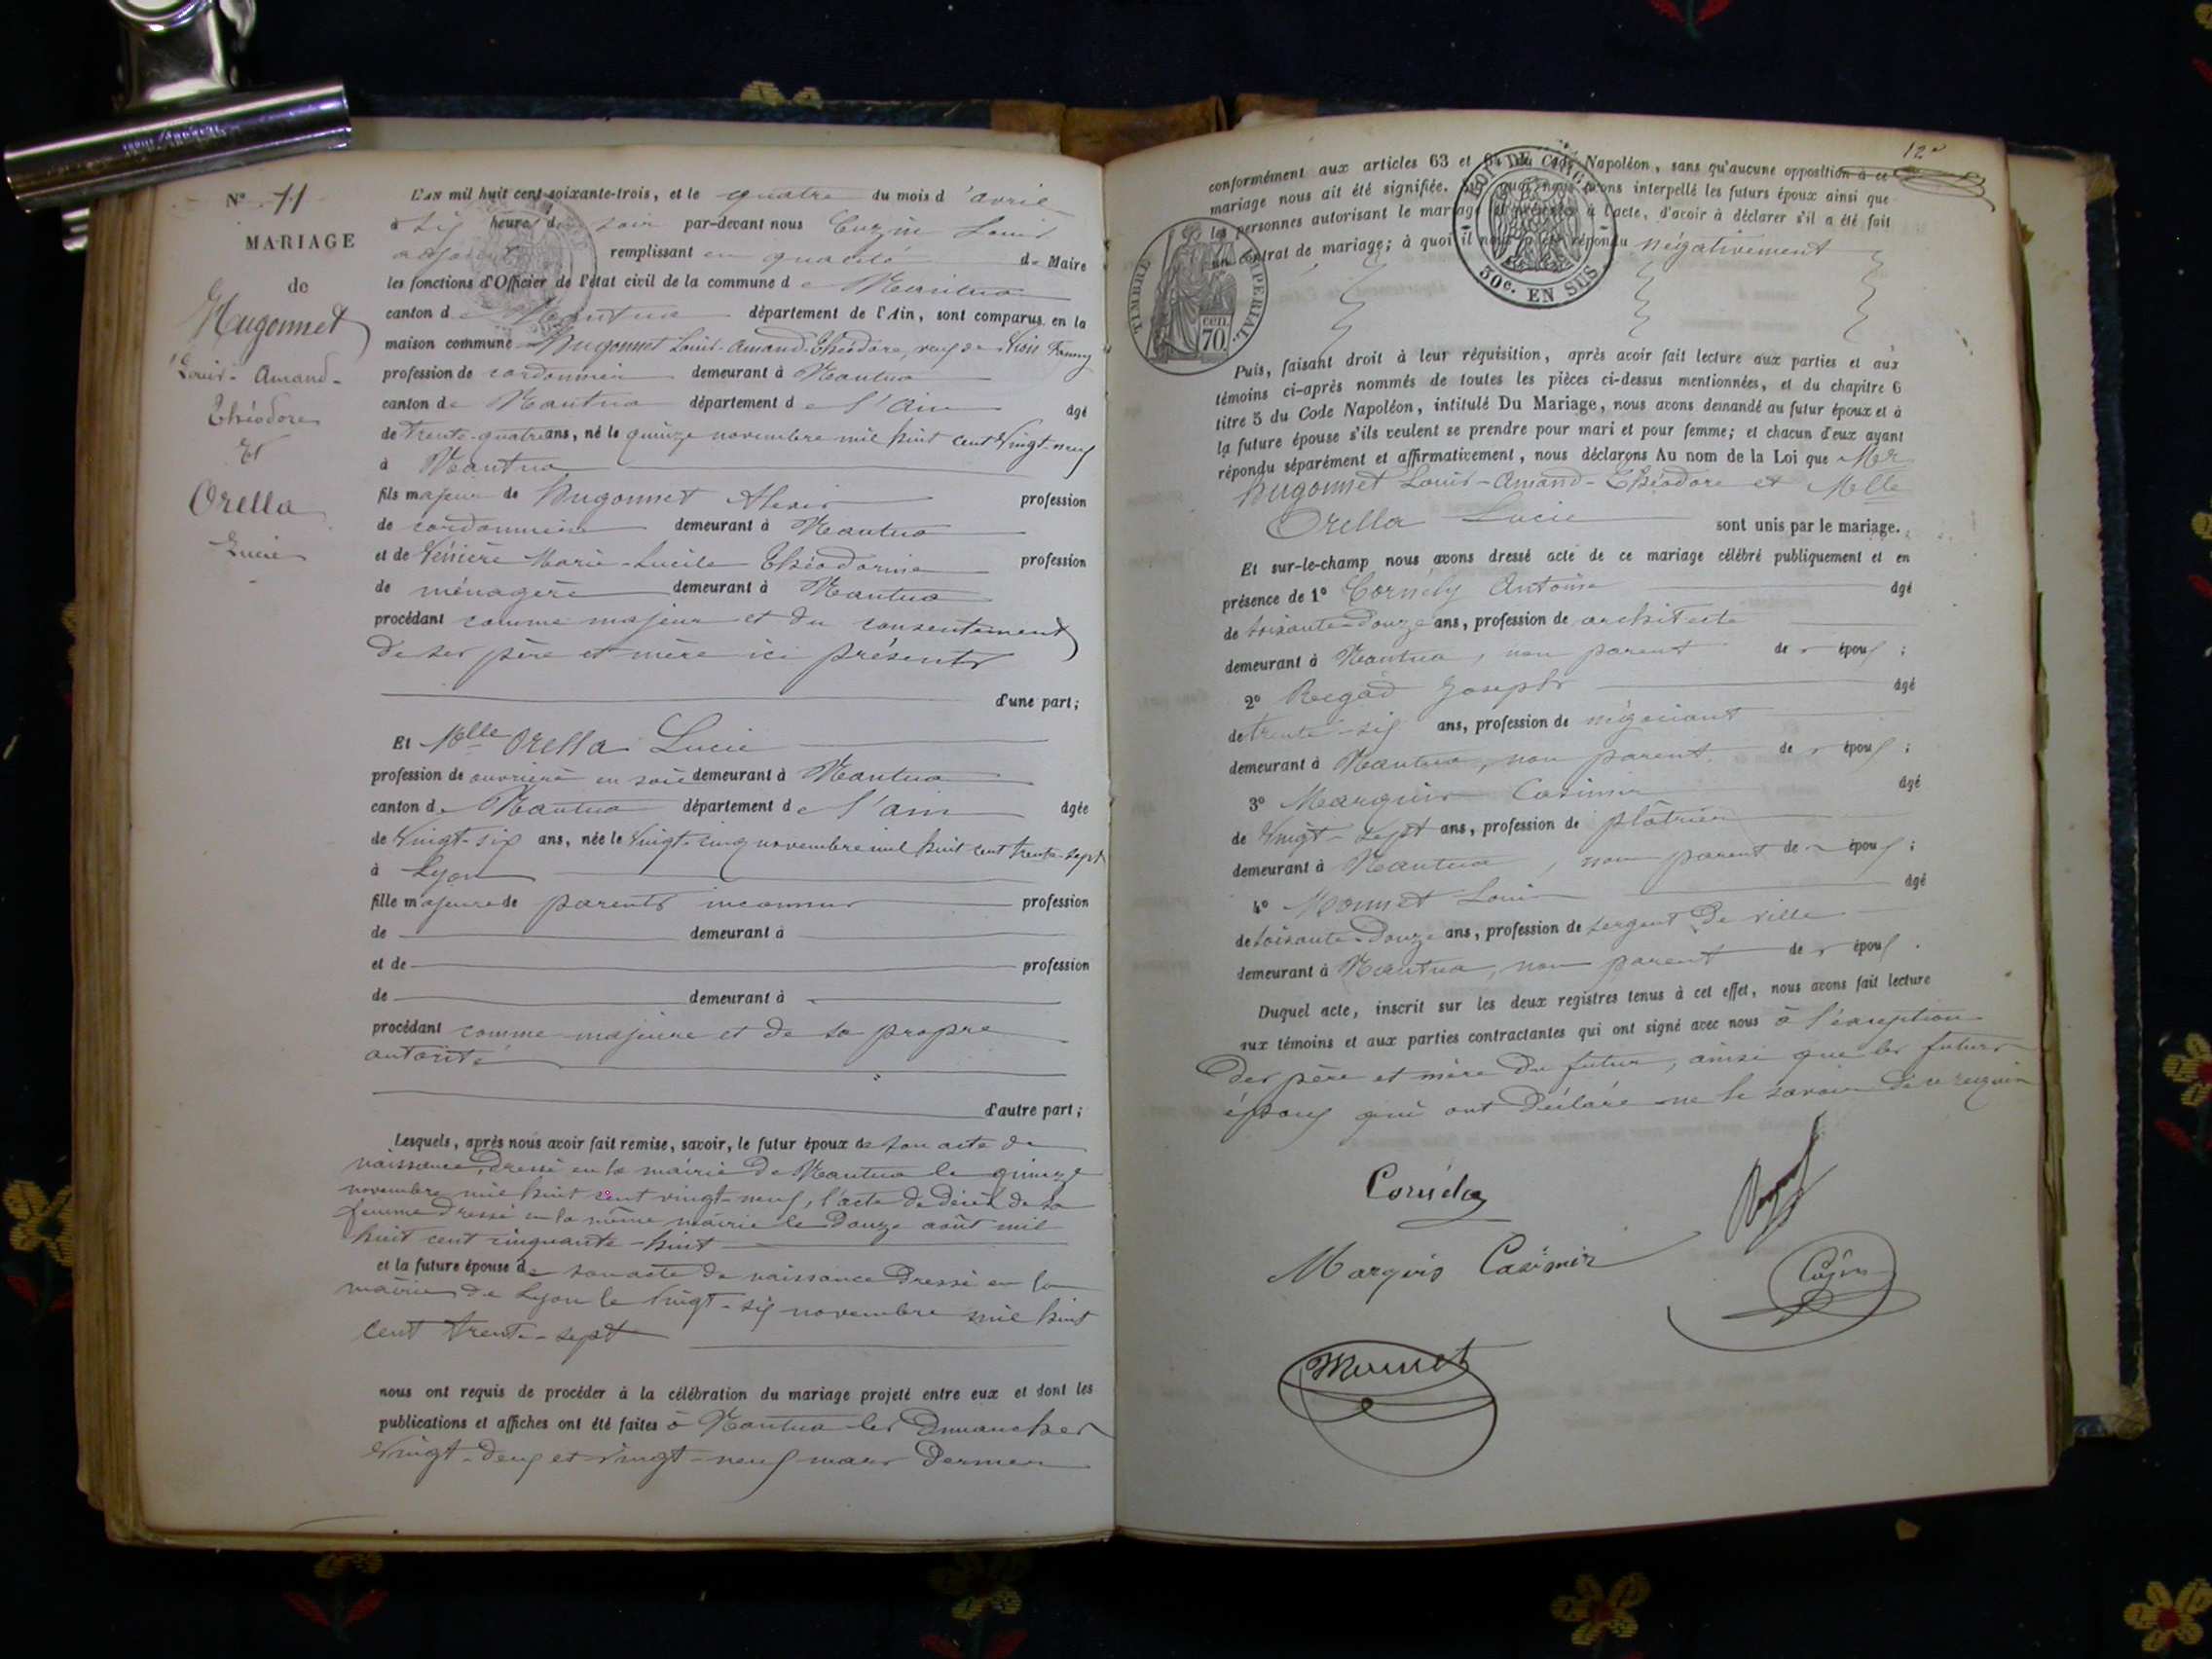 N° 11
MARIAGE
de
Hugonnet
Louis-Amand-
Théodore
Et
Orella
Lucie
L'AN mil huit cent soixante-trois, et le quatre du mois d'avril
à six heures du soir par-devant nous Louis
adjoint remplissant en qualité de Maire
les fonctions d'Officier de l'état civil de la commune de Nantua
canton de Nantua département de l'Ain, sont comparus en la
maison commune Hugonnet Louis-Amand-Théodore, veuf de Fanny
profession de cordonnier demeurant à Nantua
canton de Nantua département de l'Ain âgé
de trente-quatre ans, né le quinze novembre mil huit cent vingt-neuf
à Nantua
fils majeur de Hugonnet Alexis profession
de cordonnier demeurant à Nantua
et de Marie-Lucile Théodorine profession
de ménagère demeurant à Nantua
procédant comme majeur et du consentement
de ses père et mère ici présents
d'une part;
Et Melle Orella Lucie
profession de ouvrière en soie demeurant à Nantua
canton de Nantua département de l'Ain âgée
de vingt-six ans, née le vingt-cinq novembre mil huit cent trente-sept
à Lyon
fille majeure de parents inconnus profession
de demeurant à
et de profession
de demeurant à
procédant comme majeure et de sa propre
autorité
d'autre part;
Lesquels, après nous avoir fait remise, savoir, le futur époux de son acte de
naissance, dressé en la mairie de Nantua le quinze
novembre mil huit cent vingt-neuf, l'acte de décès de sa
femme dressé en la même mairie le douze août mil
huit cent cinquante-huit
et la future épouse de son acte de naissance dressé en la
mairie de Lyon le vingt-six novembre mil huit
cent trente-sept
nous ont requis de procéder à la célébration du mariage projeté entre eux et dont les
publications et affiches ont été faites à Nantua les Dimanches
vingt-deux et vingt-neuf mars dernier
12e
conformément aux articles 63 et 64 du Code Napoléon, sans qu'aucune opposition à ce
mariage nous ait été signifiée. Sur quoi nous avons interpellé les futurs époux ainsi que
les personnes autorisant le mariage et présentes à l'acte, d'avoir à déclarer s'il a été fait
un contrat de mariage; à quoi il nous a été répondu négativement
TIMBRE IMPERIAL
70 cen.
50c. EN SUS
Puis, faisant droit à leur réquisition, après avoir fait lecture aux parties et aux
témoins ci-après nommés de toutes les pièces ci-dessus mentionnées, et du chapitre 6
titre 5 du Code Napoléon, intitulé Du Mariage, nous avons demandé au futur époux et à
la future épouse s'ils veulent se prendre pour mari et pour femme; et chacun d'eux ayant
répondu séparément et affirmativement, nous déclarons Au nom de la Loi que Mr
Hugonnet Louis-Amand-Théodore et Melle
Orella Lucie sont unis par le mariage.
Et sur-le-champ nous avons dressé acte de ce mariage célébré publiquement et en
présence de 1° Cornély Antoine âgé
de soixante-douze ans, profession de architecte
demeurant à Nantua, non parent des époux;
2° Regad Joseph âgé
de trente-six ans, profession de négociant
demeurant à Nantua, non parent des époux;
3° Marquis Casimir âgé
de vingt-sept ans, profession de plâtrier
demeurant à Nantua, non parent des époux;
4° Monnet Louis âgé
de soixante-douze ans, profession de sergent de ville
demeurant à Nantua, non parent des époux.
Duquel acte, inscrit sur les deux registres tenus à cet effet, nous avons fait lecture
aux témoins et aux parties contractantes qui ont signé avec nous à l'exception
des père et mère du futur, ainsi que les futurs
époux qui ont déclaré ne le savoir de ce requis
Marquis Casimir
Monnet